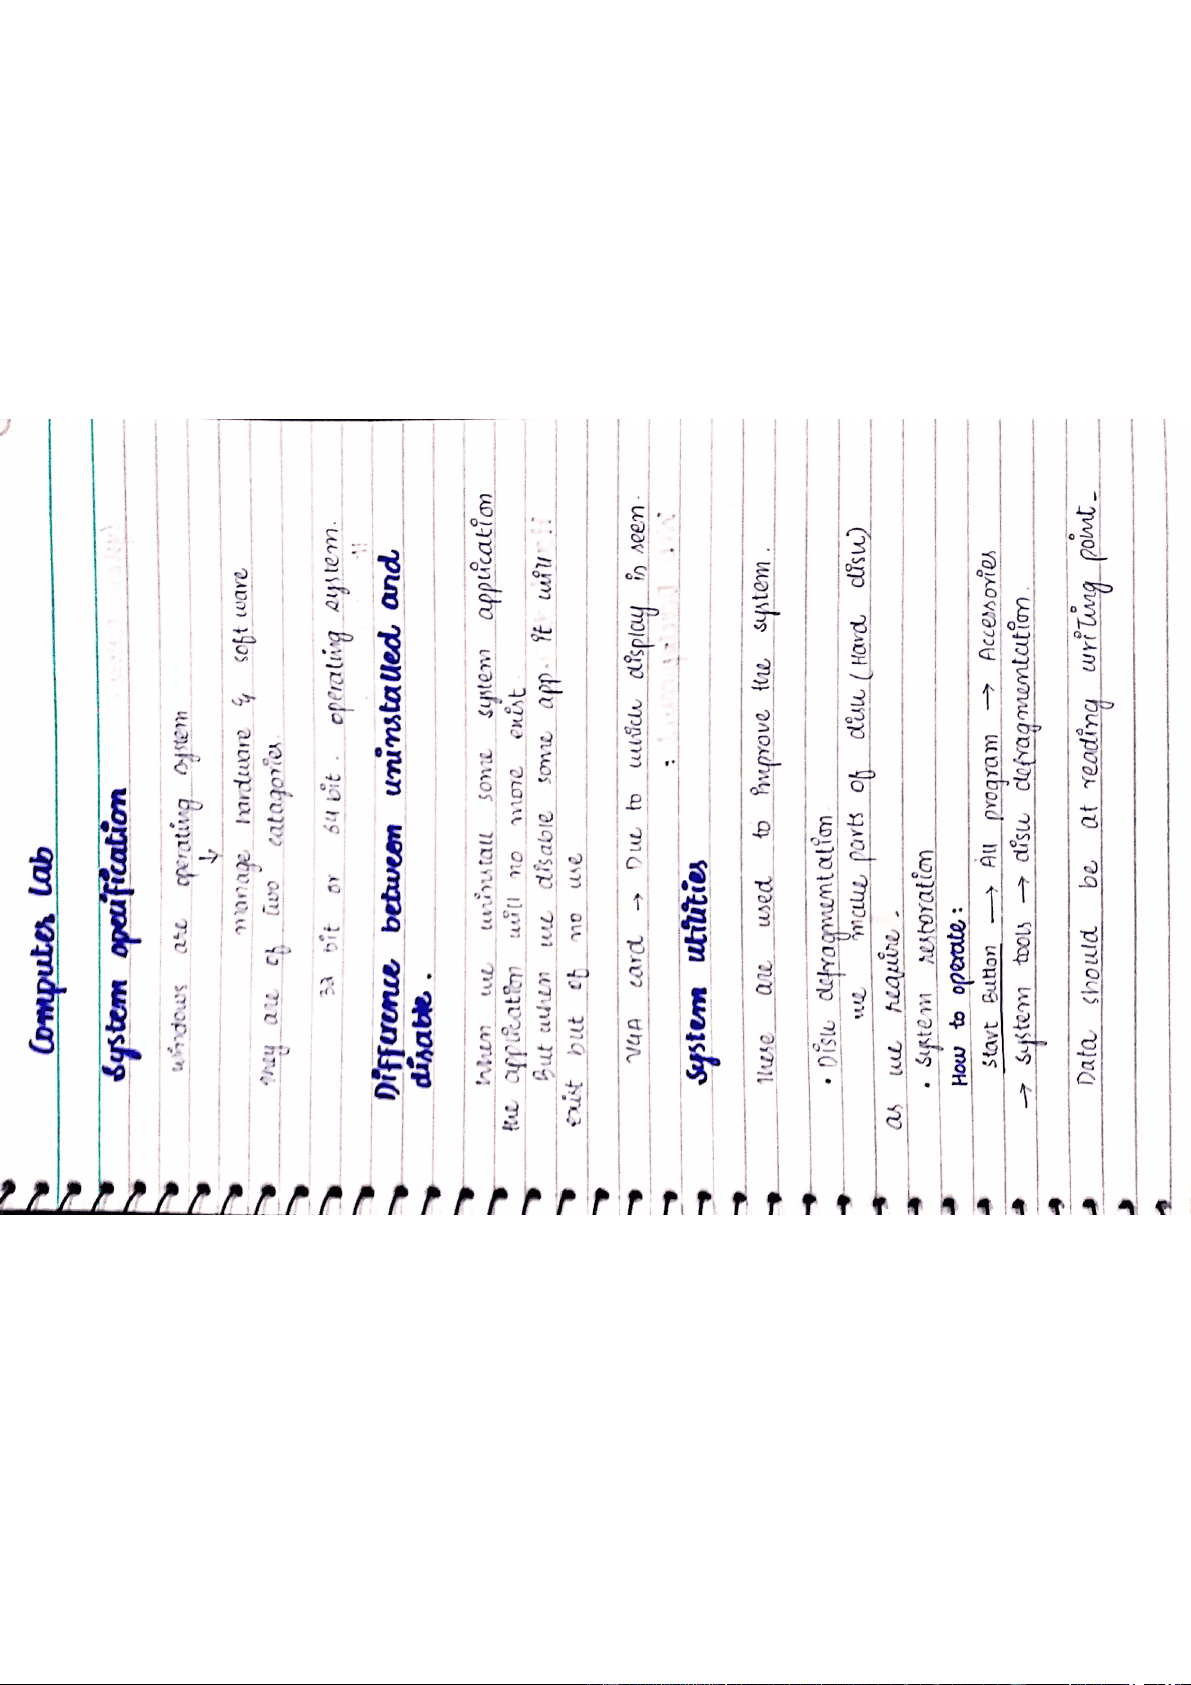 Computer lab
System specification
windows are operating system
↓
manage hardware & software
They are of two catagories.
32 bit or 64 bit . operating system.
Difference between uninstalled and
disable.
When we uninstall some system application
the application will no more exist.
But when we disable some app. it will
exist but of no use
VGA card → Due to which display is seen.
System utilities
These are used to improve the system.
• Disk defragmentation
we make parts of disk (Hard disk)
as we require.
• System restoration
How to operate:
Start Button → All program → Accessories
→ System tools → disk defragmentation.
Data should be at reading writing point.